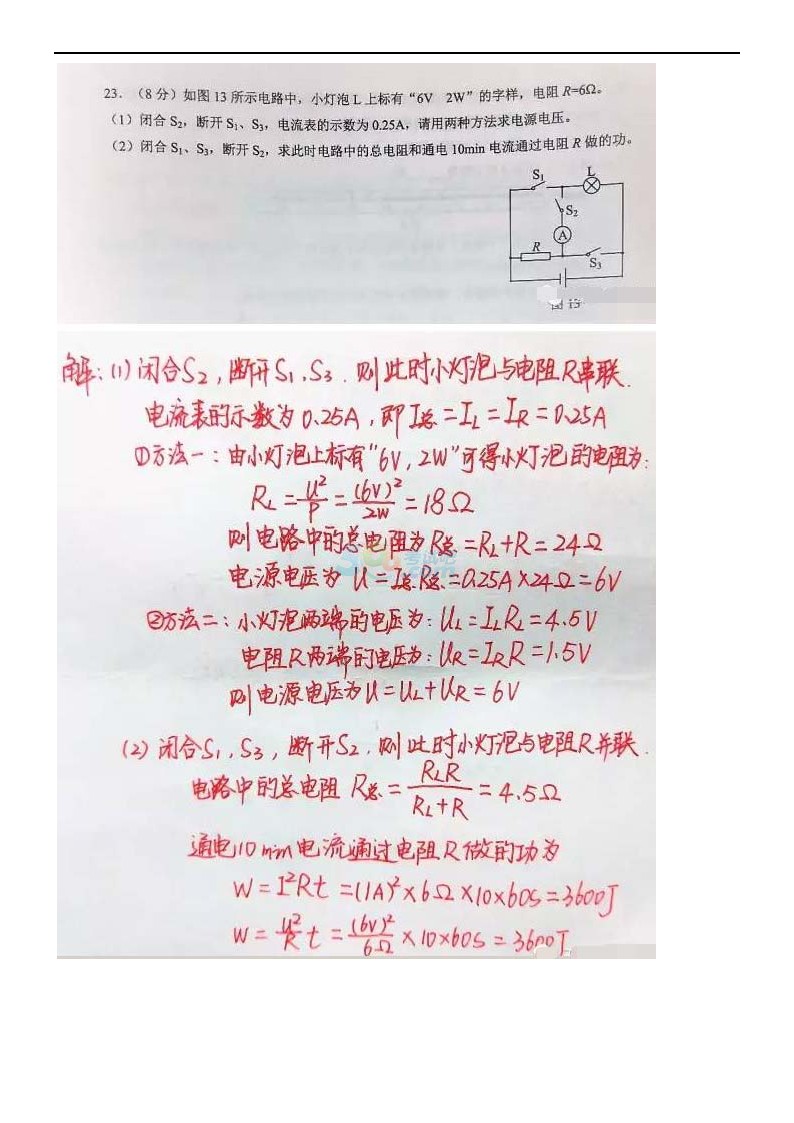 23.（8 分）如图 13 所示电路中，小灯泡 L 上标有“6V 2W”的字样，电阻 R=6Ω。
（1）闭合 S₂，断开 S₁、S₃，电流表的示数为 0.25A，请用两种方法求电源电压。
（2）闭合 S₁、S₃，断开 S₂，求此时电路中的总电阻和通电 10min 电流通过电阻 R 做的功。
S₁ L
S₂
A
R
S₃
图 13
解：(1) 闭合S₂，断开S₁、S₃．则此时小灯泡与电阻R串联．
电流表的示数为0.25A，即I总=I_L=I_R=0.25A
①方法一：由小灯泡上标有“6V，2W”可得小灯泡的电阻为：
R_L=U²/P=(6V)²/2W=18Ω
则电路中的总电阻为R总=R_L+R=24Ω
电源电压为U=I总R总=0.25A×24Ω=6V
②方法二：小灯泡两端的电压为：U_L=I_LR_L=4.5V
电阻R两端的电压为：U_R=I_RR=1.5V
则电源电压为U=U_L+U_R=6V
(2) 闭合S₁、S₃，断开S₂．则此时小灯泡与电阻R并联．
电路中的总电阻R总=R_LR/(R_L+R)=4.5Ω
通电10min电流通过电阻R做的功为
W=I²Rt=(1A)²×6Ω×10×60s=3600J
W=U²/R t=(6V)²/6Ω×10×60s=3600J